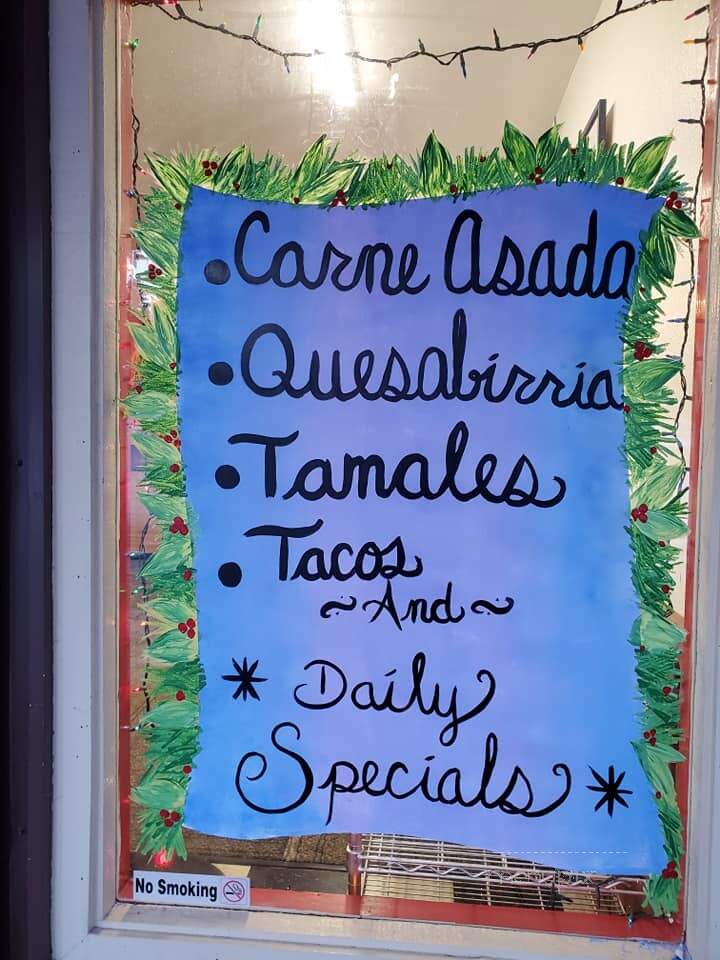 • Carne Asada
• Quesabirria
• Tamales
• Tacos
~And~
* Daily
Specials *
No Smoking